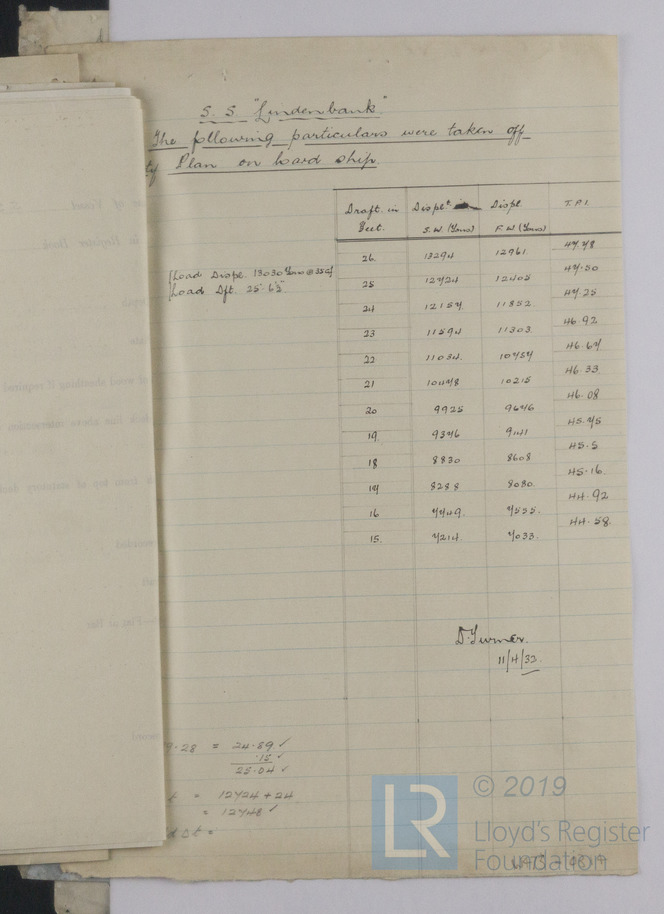 S. S. "Lindenbank"
The following particulars were taken off
ty Plan on board ship.
Draft. in Feet. Displt. S. W. (Tons) Displ. F. W. (Tons) T. P. I.
47.78
26 13294 12961
47.50
{Load Displ. 13030 Tons @ 35 cf
25 12724 12405
{Load Dft. 25' 6½"
47.25
24 12157 11852
46.92
23 11594 11303
46.67
22 11034 10757
46.33
21 10478 10215
46.08
20 9925 9676
45.75
19 9376 9141
45.5
18 8830 8608
45.16
17 8288 8080
44.92
16 7749 7555
44.58
15 7214 7033
D. Turner.
11/4/32
9.28 = 24.89 ✓
.15 ✓
25.04 ✓
t = 12724 + 24
= 12748 ✓
© 2019
LR
Lloyd's Register
Foundation